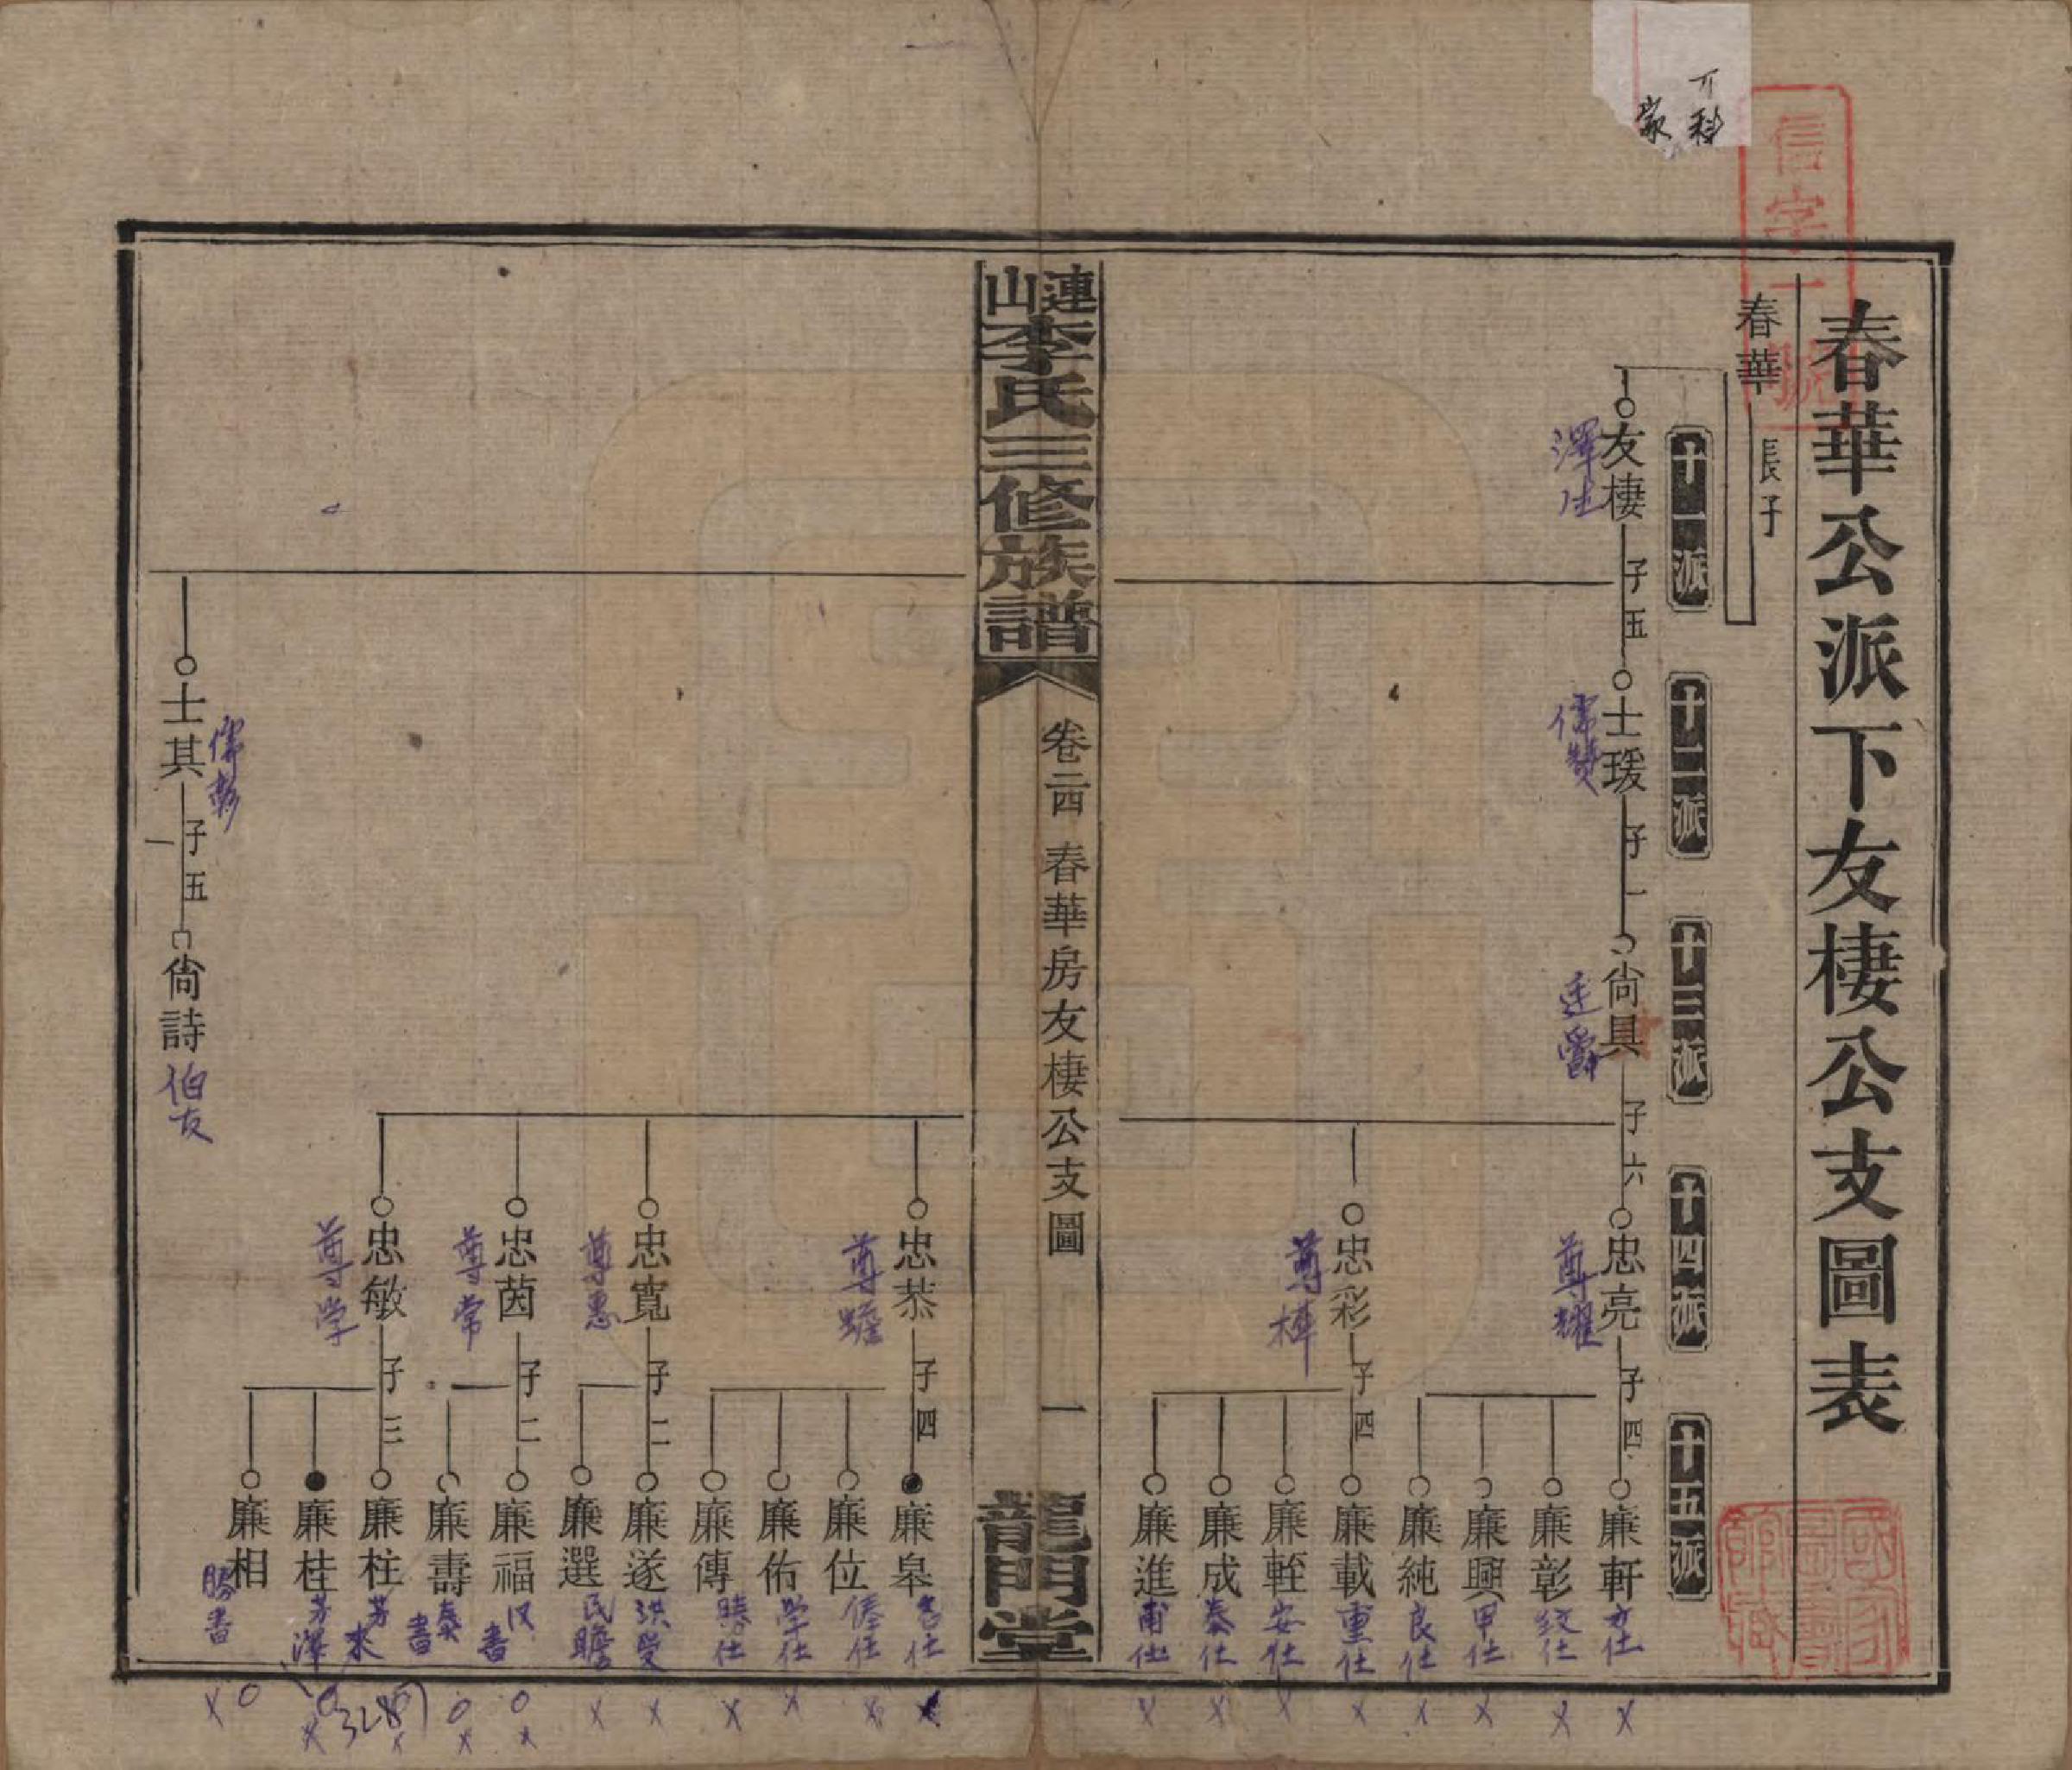 春華公派下友棲公支圖表
信字一號
春華 長子
十一派
十二派
十三派
十四派
十五派
友棲 子五
澤
士瑗 子一
儒贊
尙具 子六
廷爵
忠亮 子四
尊耀
廉軒
廉彰
紋仕
廉興
甲仕
廉純
良仕
忠彩 子四
尊樺
廉載
重仕
廉輊
安仕
廉成
泰仕
廉進
甫仕
連山李氏三修族譜
卷二四 春華房友棲公支圖
一
龍門堂
忠恭 子四
尊瞻
廉皋
廉位
俸仕
廉佑
学仕
廉傳
勝仕
忠寬 子二
尊惠
廉遂
洪受
廉選
民瞻
忠茵 子二
尊常
廉福
汉書
廉壽
泰書
忠敏 子三
尊学
廉柱
芳來
廉桂
芳澤
廉相
勝書
士其 子五
儒彰
尙詩
伯友
x x x x x x x x
x x x x x x o x o x x o x o x
(328)